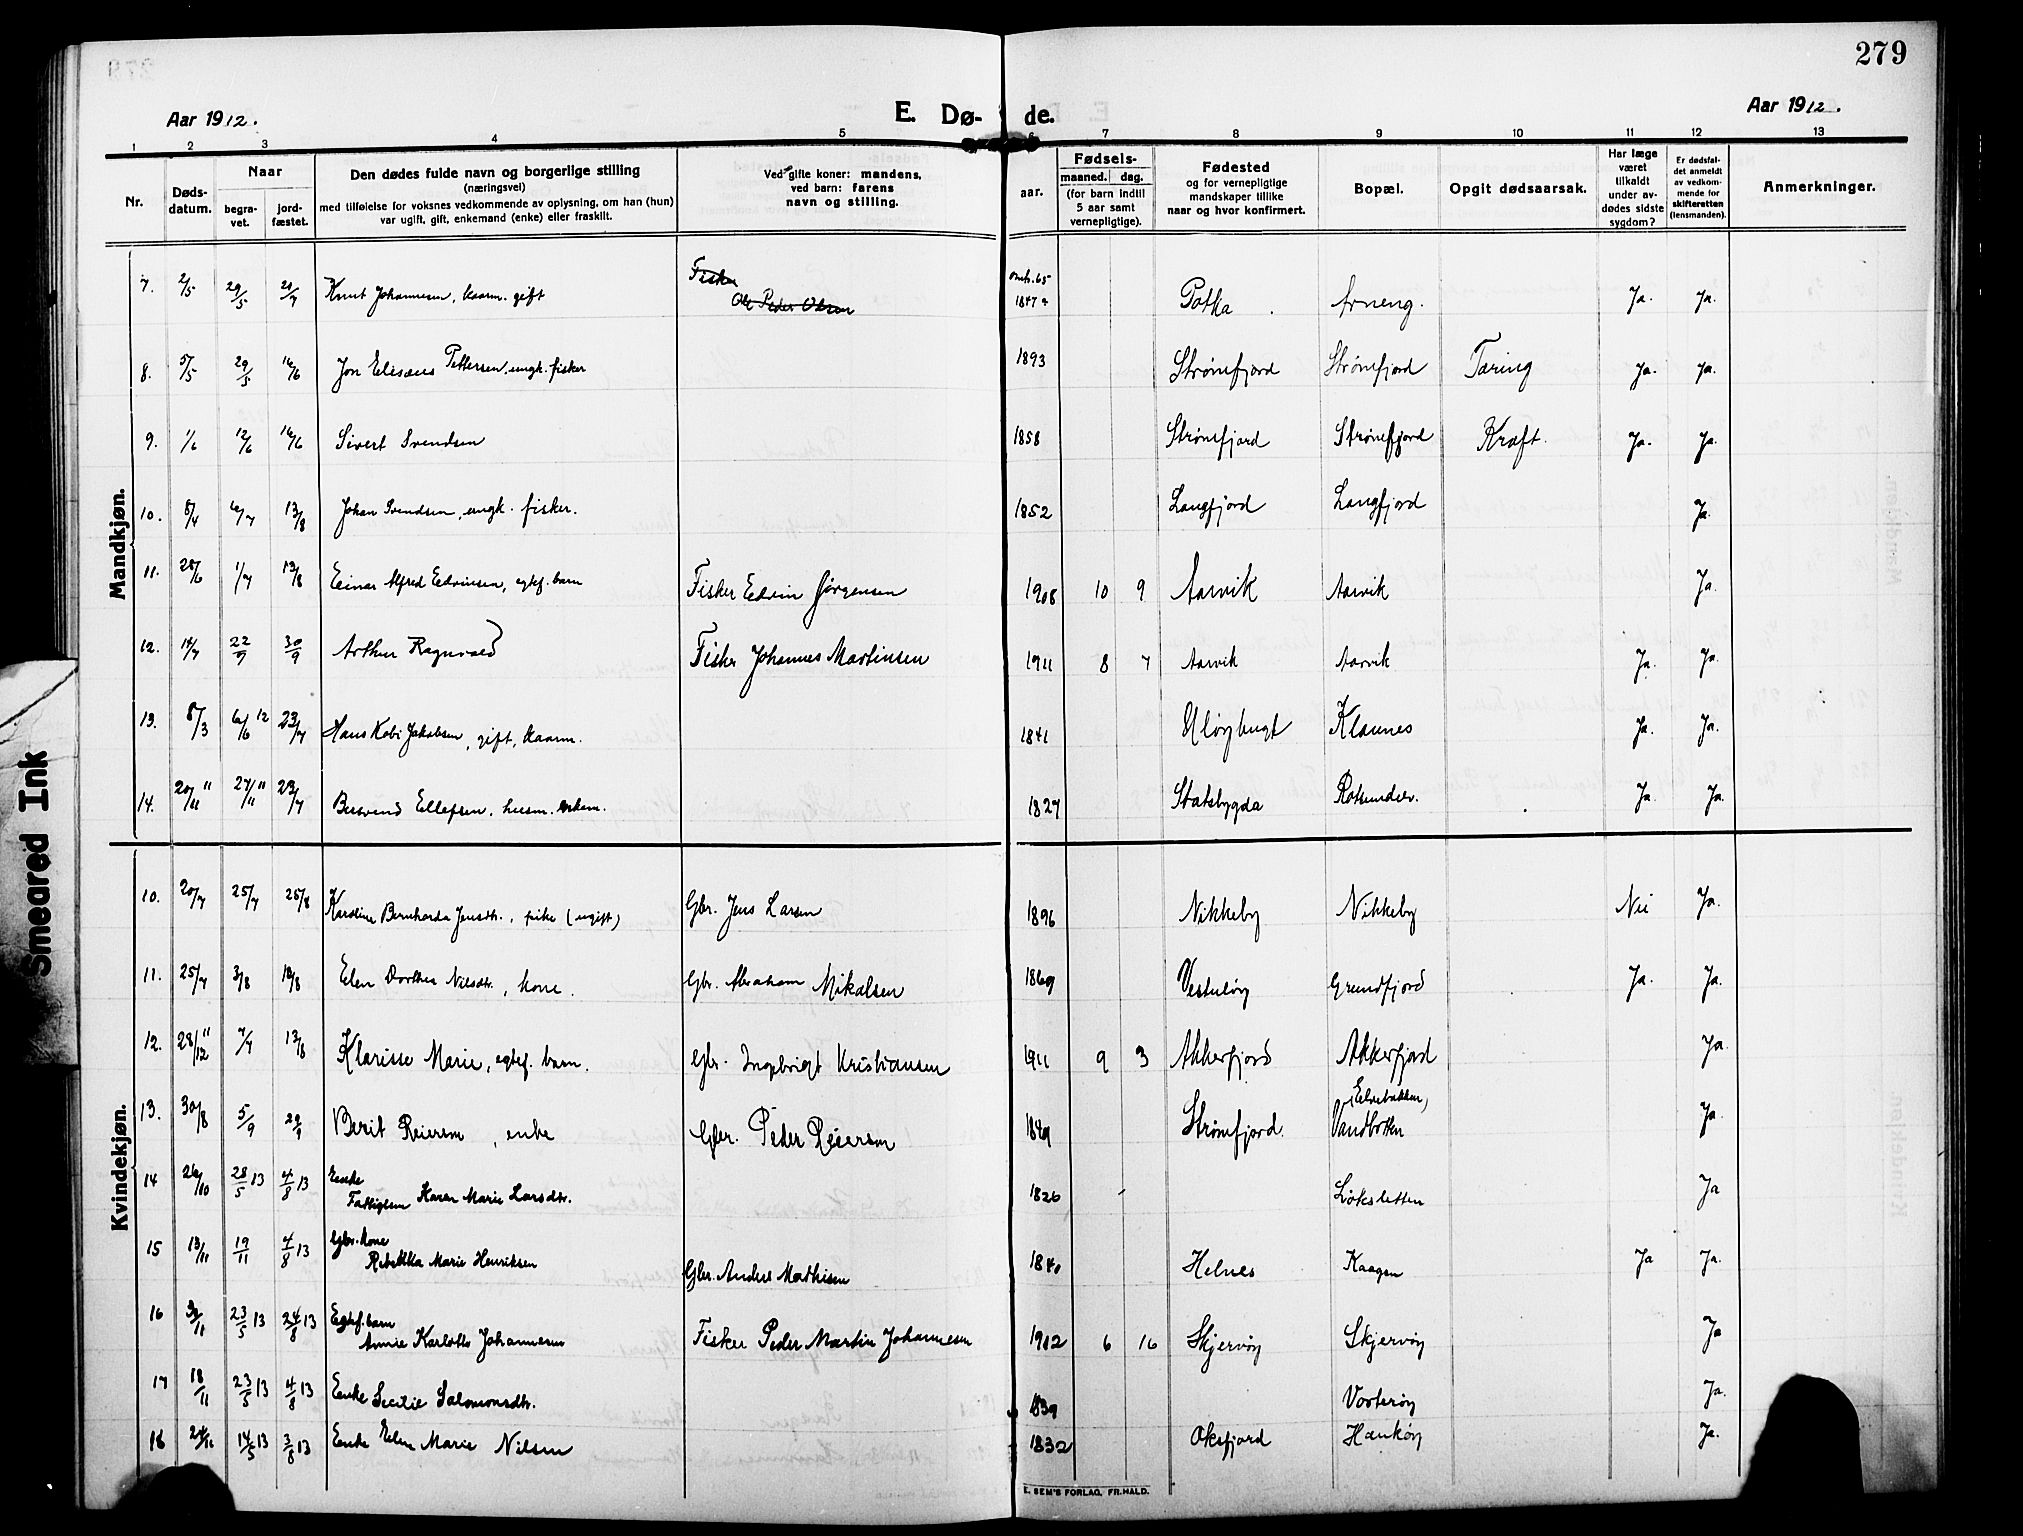 279
Aar 1912.
E. Dø- de.
Aar 1912.
1 2 3 4 5 6 7 8 9 10 11 12 13
Nr.
Døds-
datum.
Naar
begra-
vet.
jord-
fæstet.
Den dødes fulde navn og borgerlige stilling
(næringsvei)
med tilføielse for voksnes vedkommende av oplysning, om han (hun)
var ugift, gift, enkemand (enke) eller fraskilt.
Ved gifte koner: mandens,
ved barn: farens
navn og stilling.
aar.
Fødsels-
maaned. dag.
(for barn indtil
5 aar samt
vernepligtige).
Fødested
og for vernepligtige
mandskaper tillike
naar og hvor konfirmert.
Bopæl.
Opgit dødsaarsak.
Har læge
været
tilkaldt
under av-
dødes sidste
sygdom?
Er dødsfal-
det anmeldt
av vedkom-
mende for
skifteretten
(lensmanden).
Anmerkninger.
Mandkjøn.
7. 2/5 29/5 21/7 Knut Johannesen, kaarm. gift Fisker Ole Peder Olsen omtr. 65 1847 Potka Arneng. Ja. Ja.
8. 5/5 29/5 16/6 Jon Elisæus Pettersen, ungk. fisker 1893 Strømfjord Strømfjord Tæring Ja. Ja.
9. 1/6 12/6 16/6 Sivert Svendsen 1858 Strømfjord Strømfjord Kræft. Ja. Ja.
10. 8/4 6/7 13/8 Johan Svendsen, ungk. fisker. 1852 Langfjord Langfjord Ja.
11. 28/6 1/7 13/8 Einar Alfred Edvinsen, egtef. barn Fisker Edvin Jørgensen 1908 10 9 Aarvik Aarvik Ja.
12. 14/7 22/9 30/9 Arthur Ragnvald Fisker Johannes Martinsen 1911 8 7 Aarvik Aarvik Ja. Ja.
13. 8/3 6/6 12 23/7 Hans Kobi Jakobsen, gift, kaarm. 1841 Uløybugt Klaunes Ja. Ja.
14. 20/11 11 27/11 11 23/7 Bersvend Ellefsen, husm. enkem. 1827 Stadsbygda Rotsundelv. Ja. Ja.
Kvindekjøn.
10. 20/7 25/7 25/8 Karoline Bernharda Jensdtr., pike (ugift) Gbr. Jens Larsen 1896 Nikkeby Nikkeby Nei Ja.
11. 25/7 3/8 18/8 Elen Dorthea Nilsdtr., kone. Gbr. Abraham Mikalsen 1869 Vesteløy Grundfjord Ja. Ja.
12. 28/12 11 7/7 13/8 Klarisse Marie, egtef. barn. Gbr. Ingebrigt Kristiansen 1911 9 3 Akkerfjord Akkerfjord Ja.
13. 30/8 5/9 29/9 Berit Reiersen, enke Gbr. Peder Reiersen 1849 Strømfjord. Elvebakken, Vandbotten Ja.
14 26/10 28/5 13 4/8 13 Enke Fattiglem Karen Marie Larsdtr. 1826 Løksletten Ja
15 13/11 19/11 4/8 13 Gbr. kone Rebekka Marie Henriksen Gbr. Anders Mathisen 1840 Helnes Kaagen Ja Ja.
16 3/11 23/5 13 24/8 13 Egtef. barn Annie Karlotte Johannesen Fisker Peder Martin Johannesen 1912 6 16 Skjervøy Skjervøy Ja
17 18/11 23/5 13 4/8 13 Enke Secilie Salomonsdtr. 1839 Vorterøy Ja.
18 24/11 14/5 13 3/8 13 Enke Elen Marie Nilsen 1832 Oksfjord Haukøy Ja.
E. SEM'S FORLAG, FR.HALD.
Smeared Ink